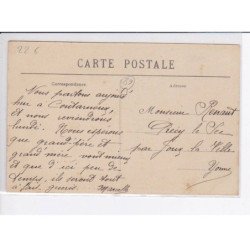 22 6
CARTE POSTALE
Correspondance
Adresse
89
Nous partons aujourd'
hui à
et nous reviendrons
lundi. Nous espérons
que grand-père et
grand'mère vont mieux
et que d'ici peu de
temps, ils seront tout
à fait guéris. Marcelle
Monsieur Renault
Précy le Sec
par Joux la Ville
Yonne